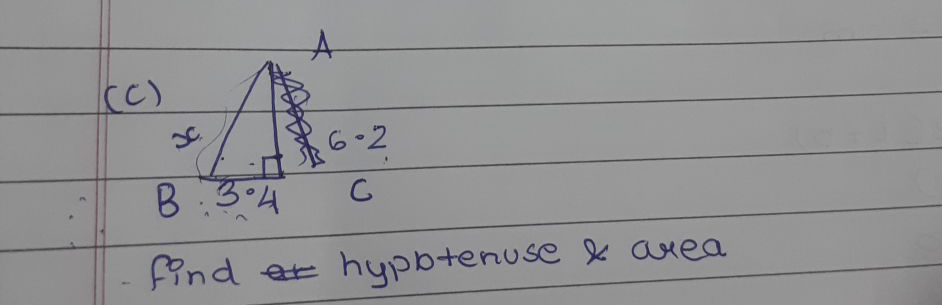 A
(C)
x
6.2
B 3.4 C
find hypotenuse & area